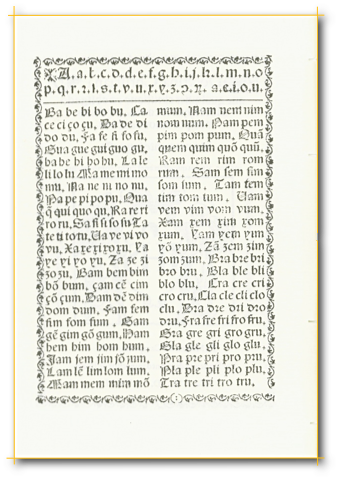 A.a.b.c.d.e.f.g.h.i.j.k.l.m.n.o
p.q.r.ꝛ.ſ.s.t.v.u.x.y.z. a.e.i.o.u.
Ba be bi bo bu. Ca
ce ci ço çu. Da de di
do du. Fa fe fi fo fu.
Gua gue gui guo gu.
ha he hi ho hu. La le
li lo lu Ma me mi mo
mu. Na ne ni no nu.
Pa pe pi po pu. Qua
q̃ qui quo qu. Ra re ri
ro ru. Sa ſi ſi ſo ſu Ta
te ti to tu. Ua ve vi vo
vu. Xa xe xi xo xu. Ya
ye yi yo yu. Za ze zi
zo zu. Bam bem bim
bõ bum. çam cẽ cim
çõ çum. Dam dẽ dim
dom dum. Fam fem
fim fom fum. Gam
gẽ gim gõ gum. Ham
hem him hom hum.
Jam jem jim jõ jum.
Lam lẽ lim lom lum.
Mam mem mim mõ
mum. Nam nem nim
nom num. Pam pem
pim pom pum. Quã
quem quim quõ quũ.
Ram rem rim rom
rum. Sam ſem ſim
ſom ſum. Tam tem
tim tom tum. Uam
vem vim vom vum.
Xam xem xim xom
xum. Yam yem yim
yõ yum. Zã zem zim
zom zum. Bra bre bri
bro bru. Bla ble bli
blo blu. Cra cre cri
cro cru. Cla cle cli clo
clu. Dra dre dri dro
dru. Fra fre fri fro fru.
Gra gre gri gro gru.
Gla gle gli glo glu.
Pra pre pri pro pru.
Pla ple pli plo plu.
Tra tre tri tro tru.